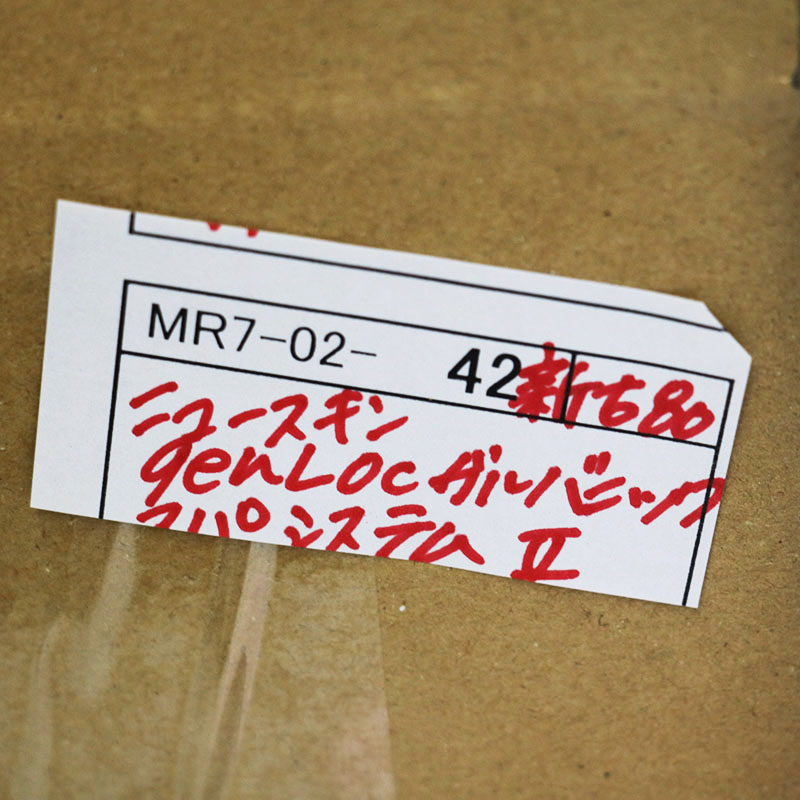 MR7-02- 42 新古80
ニュースキン
genLoc ガルバニック
スパシステム II